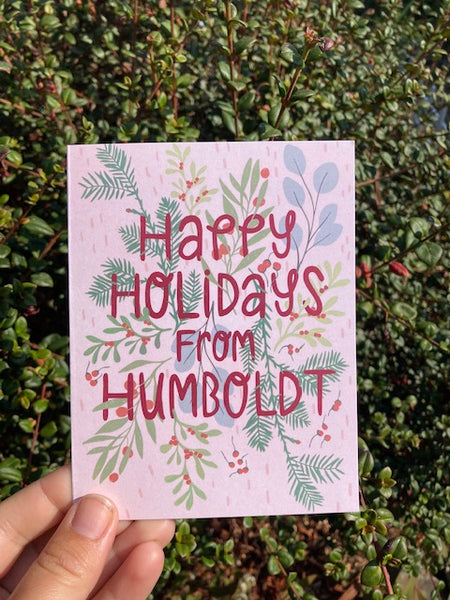 HAPPY
HOLIDAYS
FROM
HUMBOLDT